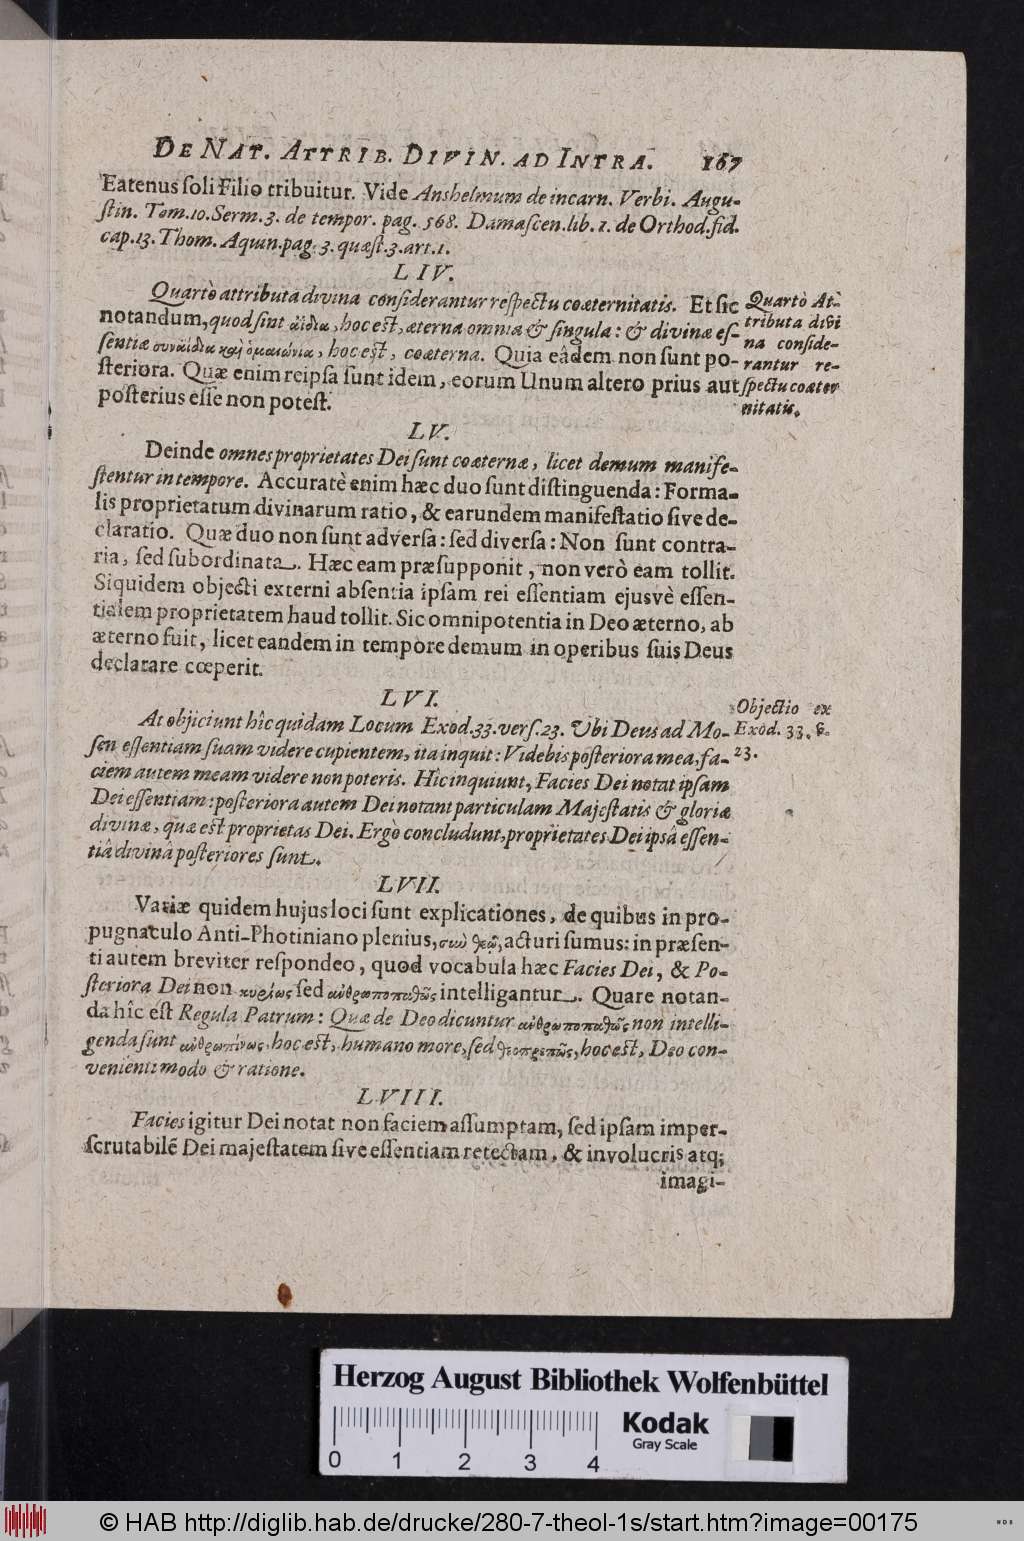 DE NAT. ATTRIB. DIVIN. AD INTRA. 167
Eatenus soli Filio tribuitur. Vide Anshelmum de incarn. Verbi. Augu-
stin. Tom. 10. Serm. 3. de tempor. pag. 568. Damascen. lib. 1. de Orthod. fid.
cap. 13. Thom. Aquin. pag. 3. quæst. 3. art. 1.
LIV.
Quartò attributa divina considerantur respectu coæternitatis. Et sic
notandum, quod sint ἀΐδια, hoc est, æterna omnia & singula: & divinæ es-
sentiæ συναΐδια καὶ ὁμαιώνια, hoc est, coæterna. Quia eâdem non sunt po-
steriora. Quæ enim reipsa sunt idem, eorum Unum altero prius aut
posterius esse non potest.
Quartò At-
tributa divi
na conside-
rantur re-
spectu coæter
nitatis.
LV.
Deinde omnes proprietates Dei sunt coæternæ, licet demum manife-
stentur in tempore. Accuratè enim hæc duo sunt distinguenda: Forma-
lis proprietatum divinarum ratio, & earundem manifestatio sive de-
claratio. Quæ duo non sunt adversa: sed diversa: Non sunt contra-
ria, sed subordinata. Hæc eam præsupponit, non verò eam tollit.
Siquidem objecti externi absentia ipsam rei essentiam ejusvè essen-
tialem proprietatem haud tollit. Sic omnipotentia in Deo æterno, ab
æterno fuit, licet eandem in tempore demum in operibus suis Deus
declarare cœperit.
LVI.
At objiciunt hîc quidam Locum Exod. 33. vers. 23. Ubi Deus ad Mo-
sen essentiam suam videre cupientem, ita inquit: Videbis posteriora mea, fa-
ciem autem meam videre non poteris. Hic inquiunt, Facies Dei notat ipsam
Dei essentiam: posteriora autem Dei notant particulam Majestatis & gloriæ
divinæ, quæ est proprietas Dei. Ergò concludunt, proprietates Dei ipsâ essen-
tiâ divinâ posteriores sunt.
Objectio ex
Exod. 33. v.
23.
LVII.
Variæ quidem hujus loci sunt explicationes, de quibus in pro-
pugnaculo Anti-Photiniano plenius, σιω θεῶ, acturi sumus: in præsen-
ti autem breviter respondeo, quod vocabula hæc Facies Dei, & Po-
steriora Dei non κυρίως sed ἀνθρωποπαθῶς intelligantur. Quare notan-
da hîc est Regula Patrum: Quæ de Deo dicuntur ἀνθρωποπαθῶς non intelli-
genda sunt ἀνθρωπίνως, hoc est, humano more, sed θεοπρεπῶς, hoc est, Deo con-
venienti modo & ratione.
LVIII.
Facies igitur Dei notat non faciem assumptam, sed ipsam imper-
scrutabilē Dei majestatem sive essentiam retectam, & involucris atq;
imagi-
Herzog August Bibliothek Wolfenbüttel
Kodak
Gray Scale
0 1 2 3 4
© HAB http://diglib.hab.de/drucke/280-7-theol-1s/start.htm?image=00175